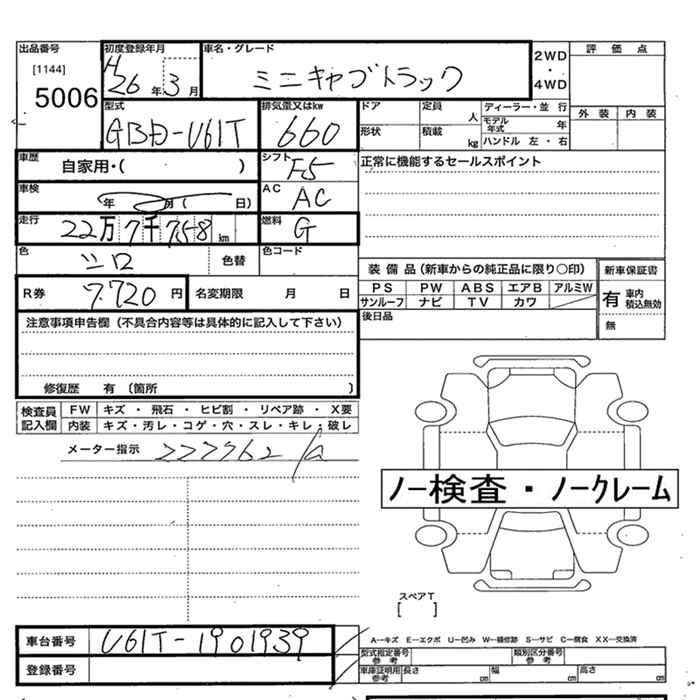 出品番号 初度登録年月 車名・グレード 2WD 評価点
[1144] H 26年3月 ミニキャブトラック ・
5006 4WD
型式 排気量又はkw ドア 定員 人 ディーラー・並 行 外装 内装
GBD-U61T 660 形状 積載 kg モデル年式 年
ハンドル 左・右
車歴 自家用・( ) シフト F5 正常に機能するセールスポイント
車検 年 月( 日) AC AC
走行 22万7千758km 燃料 G
色 シロ 色替 色コード
装備品(新車からの純正品に限り○印) 新車保証書
R券 7.720円 名変期限 月 日 PS PW ABS エアB アルミW 有 車内積込無効
サンルーフ ナビ TV カワ
注意事項申告欄(不具合内容等は具体的に記入して下さい) 後日品 無
修復歴 有 〔箇所 〕
検査員記入欄 FW キズ・飛石・ヒビ割・リペア跡・X要
内装 キズ・汚レ・コゲ・穴・スレ・キレ・破レ
メーター指示 227762
ノー検査・ノークレーム
スペアT
[ ]
車台番号 U61T-1901939 A—キズ E—エクボ U—凹み W—補修跡 S—サビ C—腐食 XX—交換済
型式指定番号 参考 類別区分番号 参考
登録番号 車庫証明用 参考 長さ cm 幅 cm 高さ cm